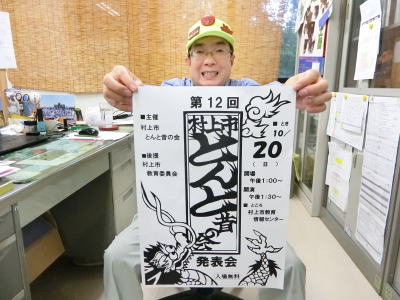 第12回
村上市
とんと昔の会
発表会
■主催
村上市
とんと昔の会
■後援
村上市
教育委員会
■とき
10/20
(日)
開場
午後1:00〜
開演
午後1:30〜
■ところ
村上市教育
情報センター
入場無料